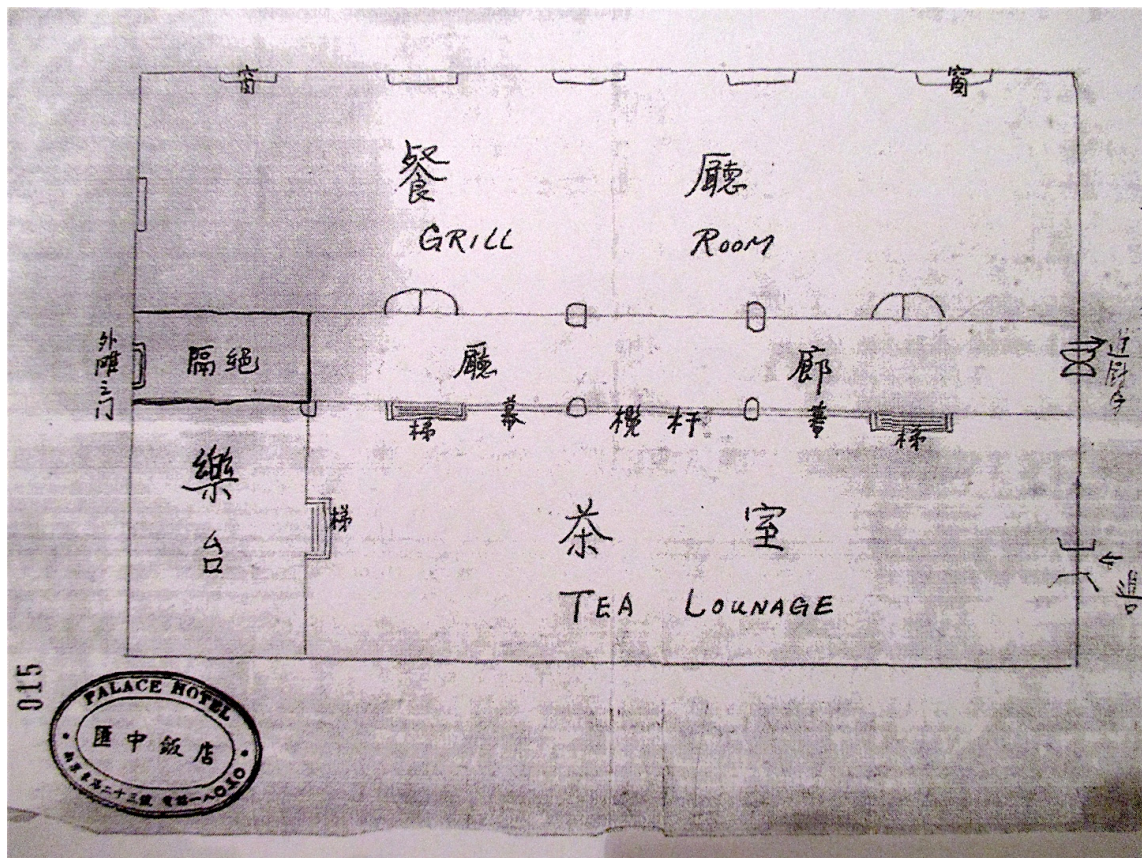 窗
窗
餐 廳
GRILL ROOM
外灘之门
隔絕
廳 廊
進厨房
梯
幕
欄杆
幕
梯
樂台
梯
茶室
TEA LOUNAGE
進口
015
PALACE HOTEL
匯中飯店